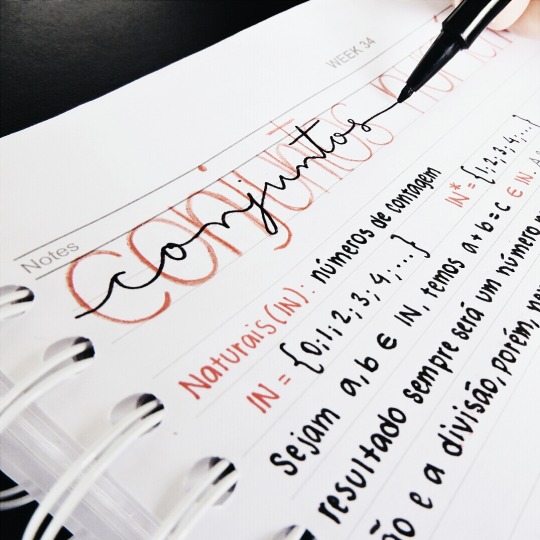 WEEK 34
Notes
conjuntos
conjuntos
Naturais (IN): números de contagem
IN = {0; 1; 2; 3; 4; ...} IN* = {1; 2; 3; 4; ...}
Sejam a, b ∈ IN, temos a + b = c ∈ IN.
resultado sempre será um número
ão e a divisão, porém,